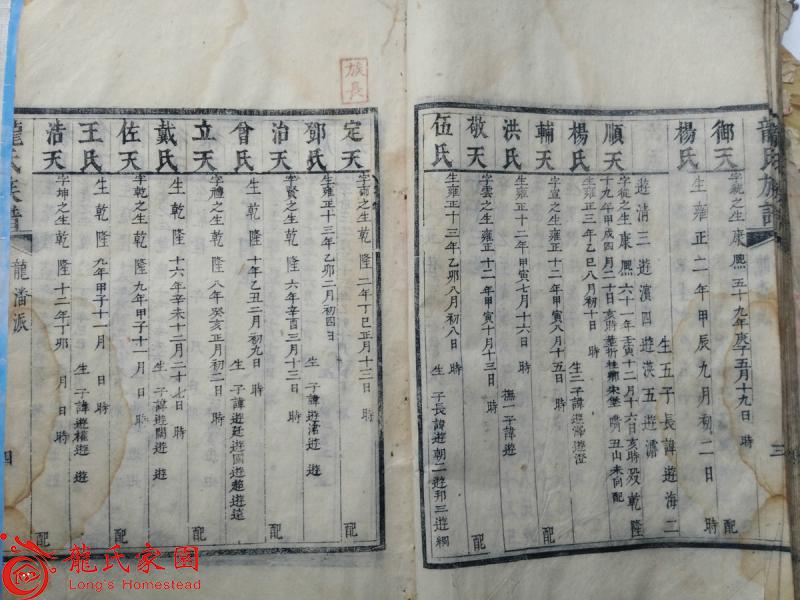 龍氏族譜
三
御天
字統之生康熙五十九年庚子五月十九日 時 配
楊氏
生雍正二年甲辰九月初二日 時
生五子長諱遊海二
遊清三遊濱四遊洪五遊澹
順天
字從之生康熙六十一年壬寅十二月十六日亥時歿乾隆
十九年甲戌四月二十日亥時葬折桂鄉宋堡 丑山未向配
楊氏
生雍正三年乙巳八月初十日 時 生二子諱遊 遊澄
輔天
字宣之生雍正十二年甲寅八月十五日 時 配
洪氏
生雍正十二年甲寅七月十六日 時 撫一子諱遊
敬天
字雲之生雍正十二年甲寅十月十三日 時 配
伍氏
生雍正十三年乙卯八月初八日 時 生 子長諱遊朝二遊邦三遊綱
族長
定天
字 之生乾隆二年丁巳正月十三日 時 配
鄧氏
生雍正十三年乙卯二月初四日 時 生 子諱遊 遊
治天
字賢之生乾隆六年辛酉三月十三日 時 配
曾氏
生乾隆十年乙丑二月初九日 時 生 子諱遊廷遊國遊 遊遠
立天
字禮之生乾隆八年癸亥正月初二日 時 配
戴氏
生乾隆十六年辛未十二月二十七日 時 生 子諱遊關遊
佐天
字乾之生乾隆九年甲子十一月 日 時 配
王氏
生乾隆九年甲子十一月 日 時 生 子諱遊權遊 遊
浩天
字坤之生乾隆十二年丁卯 月 日 時 配
龍氏族譜
龍潘派
四
龍氏家園
Long's Homestead